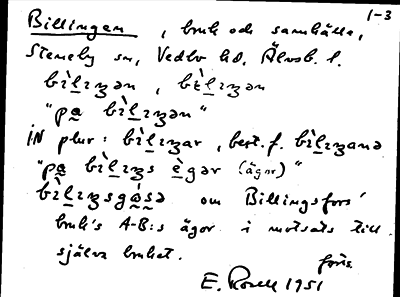 1-3
Billingen, bruk och samhälle,
Steneby sn, Vedbo hd, Älvsb. l.
bìl̲ɪŋən, bìl̲ɪŋən
"pa̲ bìl̲ɪŋən"
IN plur: bìl̲ɪŋar, best. f. bìl̲ɪŋanə
"pa̲ bìl̲ɪŋs è̲gər (ägor)"
bìl̲ɪŋsgá̲s̲ə om Billingsfors'
bruk's A-B:s ägor i motsats till
själva bruket. forts.
E. 1951